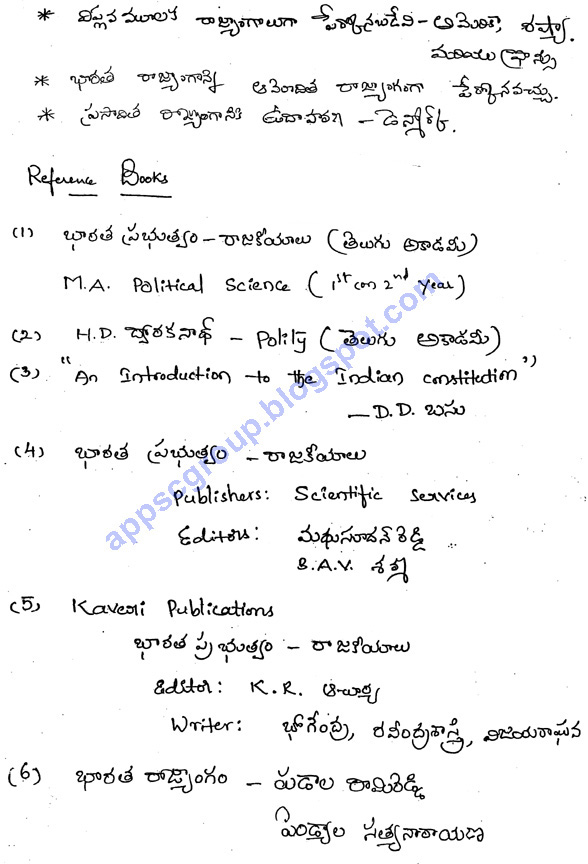 * విప్లవ మూలక రాజ్యాంగాలుగా పేర్కొనబడేవి - అమెరికా, రష్యా
మరియు ఫ్రాన్సు
* భారత రాజ్యాంగాన్ని ఆమోదిత రాజ్యాంగంగా పేర్కొనవచ్చు.
* ప్రసాదిత రాజ్యాంగానికి ఉదాహరణ - డెన్మార్క్.
Reference Books
(1) భారత ప్రభుత్వం - రాజకీయాలు (తెలుగు అకాడమీ)
M.A. Political Science (1st (or) 2nd Year)
(2) H.D. ద్వారకనాథ్ - Polity (తెలుగు అకాడమీ)
(3) "An Introduction to the Indian constitution"
- D.D. బసు
(4) భారత ప్రభుత్వం - రాజకీయాలు
Publishers: Scientific Services
Editors: మధుసూదన్ రెడ్డి
B.A.V. శర్మ
(5) Kaveri Publications
భారత ప్రభుత్వం - రాజకీయాలు
Editor: K.R. ఆచార్య
Writer: భోగేంద్ర, రవీంద్రశాస్త్రి, విజయరాఘవ
(6) భారత రాజ్యాంగం - పడాల రామిరెడ్డి
పిండ్యాల సత్యనారాయణ
appscgroup.blogspot.com